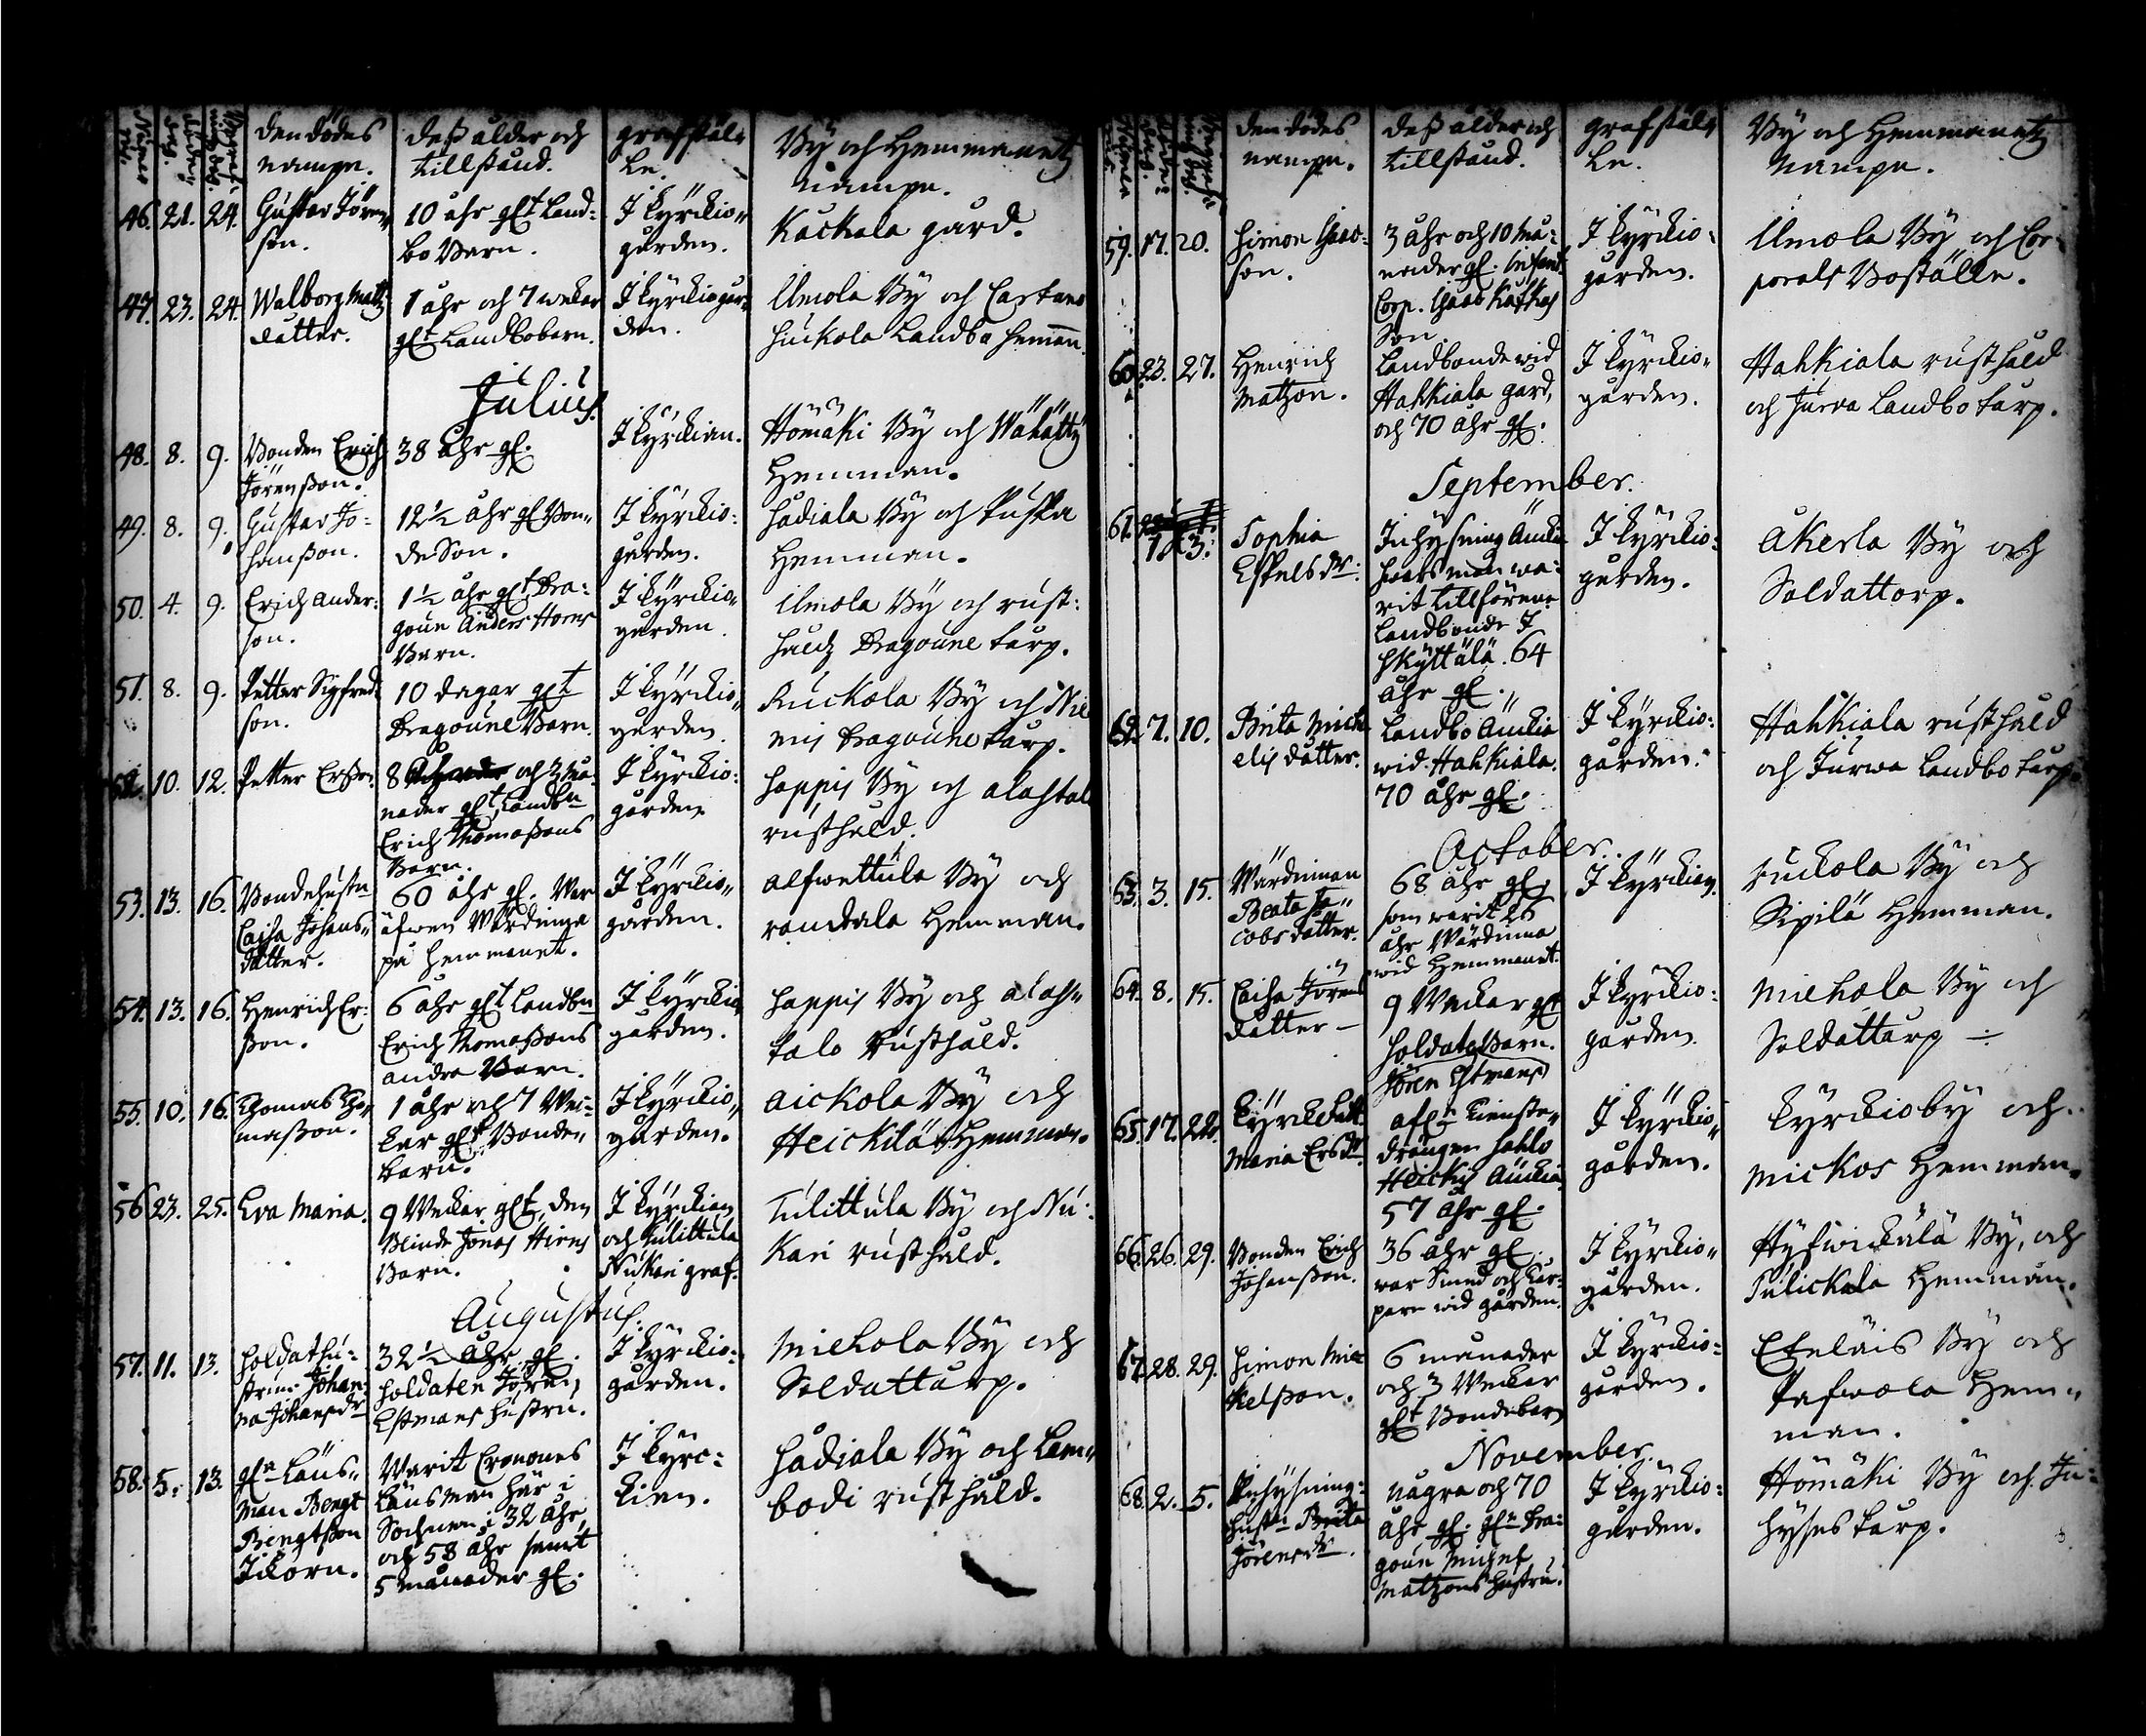 den dödes
nampn.
deß ålder och
tillstånd.
grafställ-
le.
By och Hemmanetz
nampn.
46. 21. 24. Gustav Jören-
son.
10 åhr glt Land-
bo Barn.
I kyrckio-
gården.
Kackala gård.
47. 23. 24. Walborg Matz
datter.
1 åhr och 7 wekor
glt Landbobarn.
I kyrckiogår-
den.
Umola By och Cartano
Landbo Hemman
Julius.
48. 8. 9. Bonden Erich
Jörenßon.
38 åhr gl.
I kyrckian.
Hömäki By och Wähätty
Hemman.
49. 8. 9. Gustav Jo-
hanßon.
12½ åhr gl Bon-
de Son.
I kyrckio-
gården.
Sadiala By och Puska
Hemman.
50. 4. 9. Erich Ander-
son.
1½ åhr glt Dra-
goun Anders Horns
Barn.
I kyrckio-
gården.
Umola By och rust-
haldz Dragoune tårp.
51. 8. 9. Petter Sigfred-
son.
10 dagar glt
Dragoune Barn.
I kyrckio-
gården.
Ruckola By och Nie
mis Dragoune tårp.
52. 10. 12. Petter Erßon
8 och 3 må-
nader glt Landbn
Erich Thomaßons
Barn.
I kyrckio-
gården.
Happis By och alastal
rusthåld.
53. 13. 16. Bondehustn
Caisa Johans-
datter.
60 åhr gl. War
äfwen Wärdinna
på Hemmanet.
I kyrckio-
gården.
alfwettula By och
randala Hemman.
54. 13. 16. Henrich Er-
ßon.
6 åhr glt Landbn
Erich Thomaßons
andra Barn.
I kyrckio
gården.
Happis By och alas-
talo Rusthåld.
55. 10. 16. Thomas Tho-
maßon.
1 åhr och 7 Wec-
kar glt Bonde-
barn.
I kyrckio-
gården.
aickola By och
Heickilä Hemman.
56 23. 25. Eva Maria.
9 Weckar glt, den
Blinde Jonas Hirns
Barn.
I kyrckian
och Tulittula
Nukari graf.
Tulittula By och Nu-
kari rusthåld.
Augustus.
57. 11. 13. Soldathu-
strun Johan-
na Johansdr
32½ åhr gl.
Soldaten Jören
Estmans Hustru.
I kyrckio-
gården.
Miehola By och
Soldattårp.
58. 5. 13. gln Läns-
man Bengt
Bengtßon
Ickorn.
Warit Cronones
Länsman här i
Sochnen i 32 åhr,
och 58 åhr samt
5 månader gl.
I kyrc-
kian.
Sadiala By och Lam-
bodi rusthåld.
den dödes
nampn.
deß ålder och
tillstånd.
grafställ-
le.
By och Hemmanetz
Nampn.
59. 17. 20. Simon Isac-
son.
3 åhr och 10 må-
nader gl.
Corp. Isaac
Son
I kyrckio-
gården.
Umola By och Cor-
porals Boställe.
60. 23. 27. Henrich
Matzon.
Landbonde wid
Hakkiala gård,
och 70 åhr gl.
I kyrckio-
gården.
Hahkiala rusthåld
och Jurva Landbo tårp.
September.
61. 1. 3. Sophia
Eskelsdr.
Inhysning Änckia
hwars man wa-
rit tillförene
Landbonde I
Skyttälä. 64
åhr gl.
I kyrckio-
gården.
Åkerla By och
Soldattorp.
62. 7. 10. Brita Mich
elis datter.
Landbo Änckia
wid Hahkiala.
70 åhr gl.
I kyrckio-
gården.
Hahkiala rusthåld
och Jurwa Landbo tårp.
October.
63. 3. 15. Wärdinnan
Beata Ja-
cobs datter.
68 åhr gl.
som warit 26
åhr Wärdinna
wid Hemmanet.
I kyrckian.
ruckola By och
Sipilä Hemman.
64. 8. 15. Caisa Jörens
datter
9 Weckar glt
SoldateBarn.
Jören Estmans
I kyrckio-
gården.
Miehola By och
Soldattarp
65. 17. 22.
Maria Ersdr.
afl. Tienste-
drängen
Heickis Änckia,
57 åhr gl.
I kyrckio-
gården.
Kyrckioby och
Mickos Hemman.
66. 26. 29. Bonden Erich
Johanßon.
36 åhr gl.
war Smed och
wid gården.
I kyrckio-
gården.
By, och
Tulickala Hemman.
67. 28. 29. Simon Mic
kelßon.
6 månader
och 3 Weckar
glt Bondebarn
I kyrckio-
gården.
Eteläis By och
Pafwola Hem-
man.
November.
68. 2. 5. Inhysning-
hustn Brita
Jörensdr.
några och 70
åhr gl. gln Dra-
goun Michel
Matzons Hustru.
I kyrckio-
gården.
Hömäki By och In-
hyses tarp.